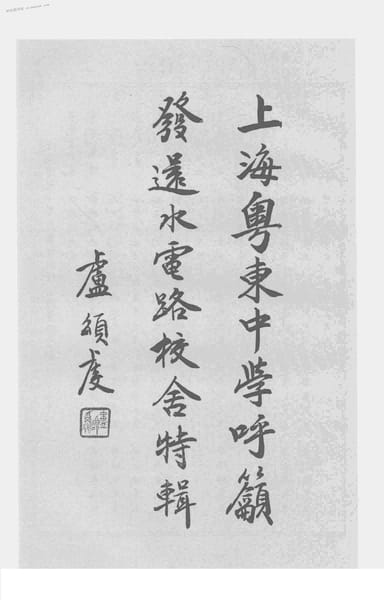 上海粤東中学呼籲
發還水電路校舍特輯
盧頌虔